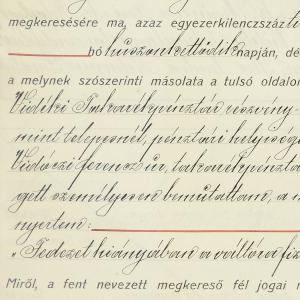 megkeresésére ma, azaz egyezerkilenczszáz
hó huszonkettedik napján, dé
a melynek szószerinti másolata a tulsó oldalon
Vidéki Takarékpénztár részvény-
mint telepesnél, pénztári helyiség
Vidóczi Ferencz úr, takarékpénzta
gett személyesen bemutattam, a m
nyertem:
"Fedezet hiányában a váltóra fiz
Miről, a fent nevezett megkereső fél jogai